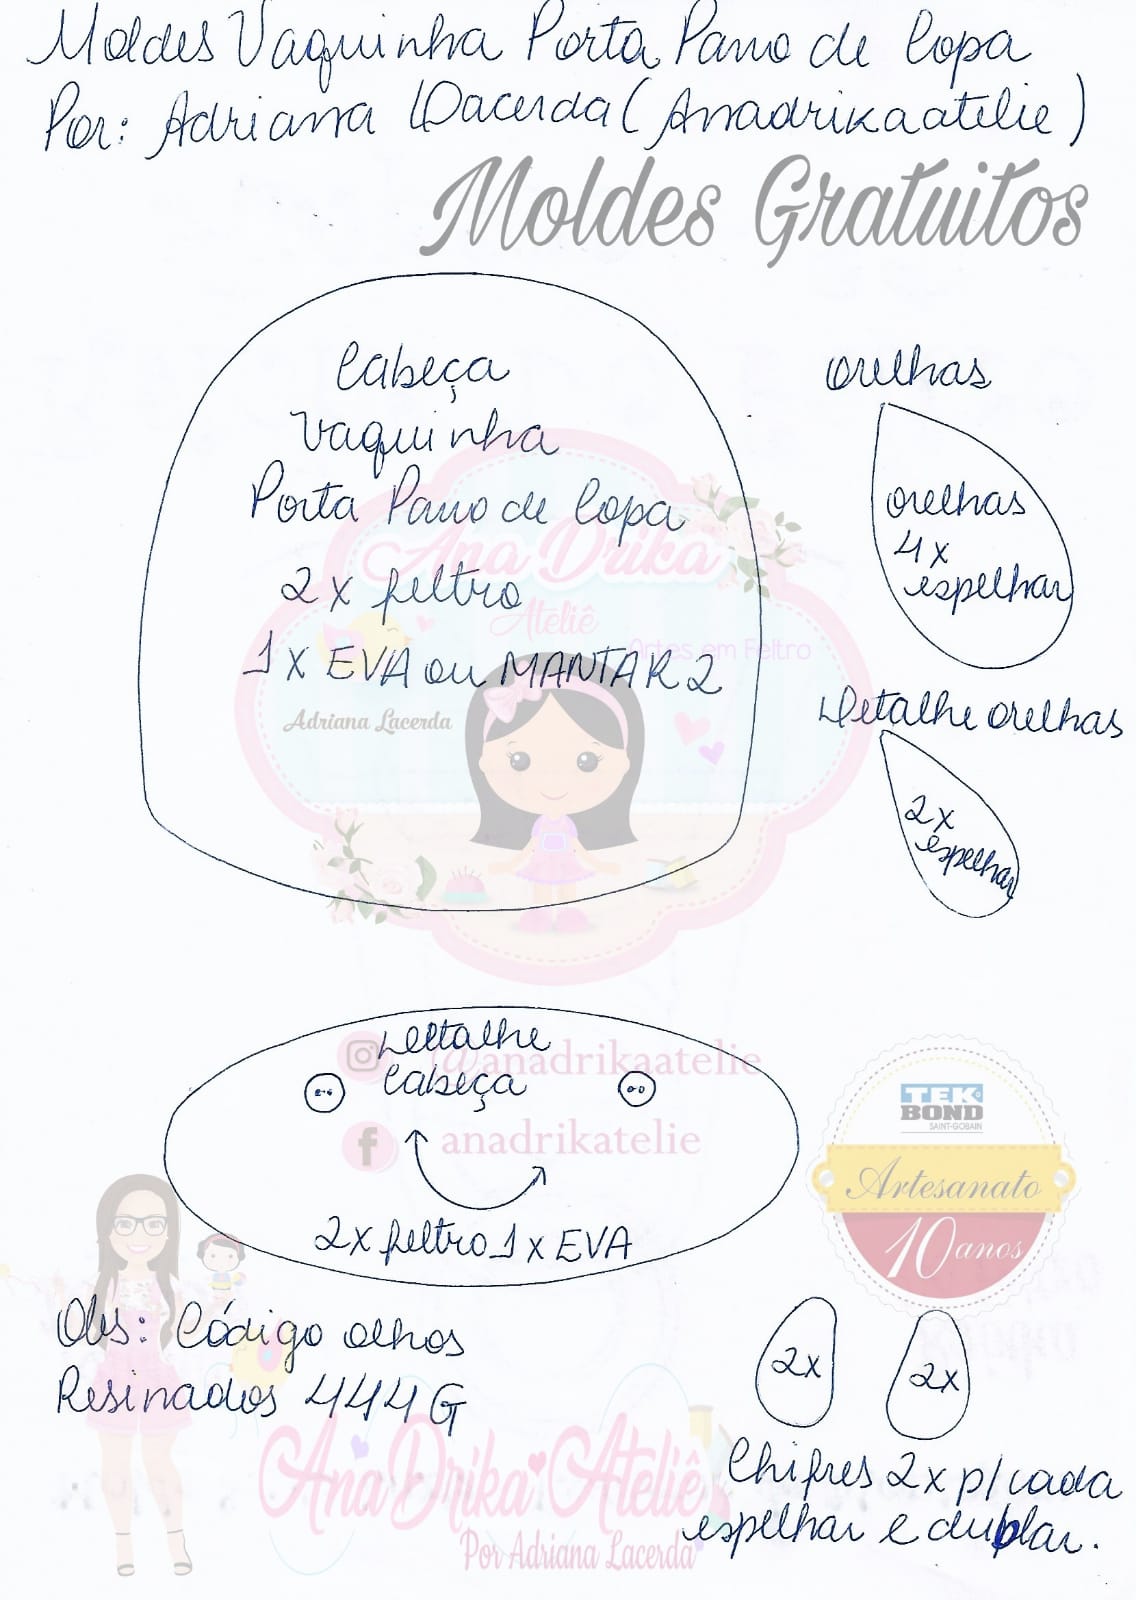 Moldes Vaquinha Porta Pano de Copa
Por: Adriana Lacerda (Anadrikaatelie)
Moldes Gratuitos
Cabeça
Vaquinha
Porta Pano de Copa
2x feltro
1x EVA ou MANTA R2
Orelhas
orelhas
4x
espelhar
Detalhe orelhas
2x
espelhar
Ana Drika
Ateliê
Artes em Feltro
Adriana Lacerda
Detalhe
Cabeça
@anadrikaatelie
anadrikatelie
2x feltro 1x EVA
TEK
BOND
SAINT-GOBAIN
Artesanato
10 anos
Obs: Código olhos
Resinados 444G
2x
2x
Chifres 2x p/ cada
espelhar e duplar.
Ana Drika Ateliê
Por Adriana Lacerda